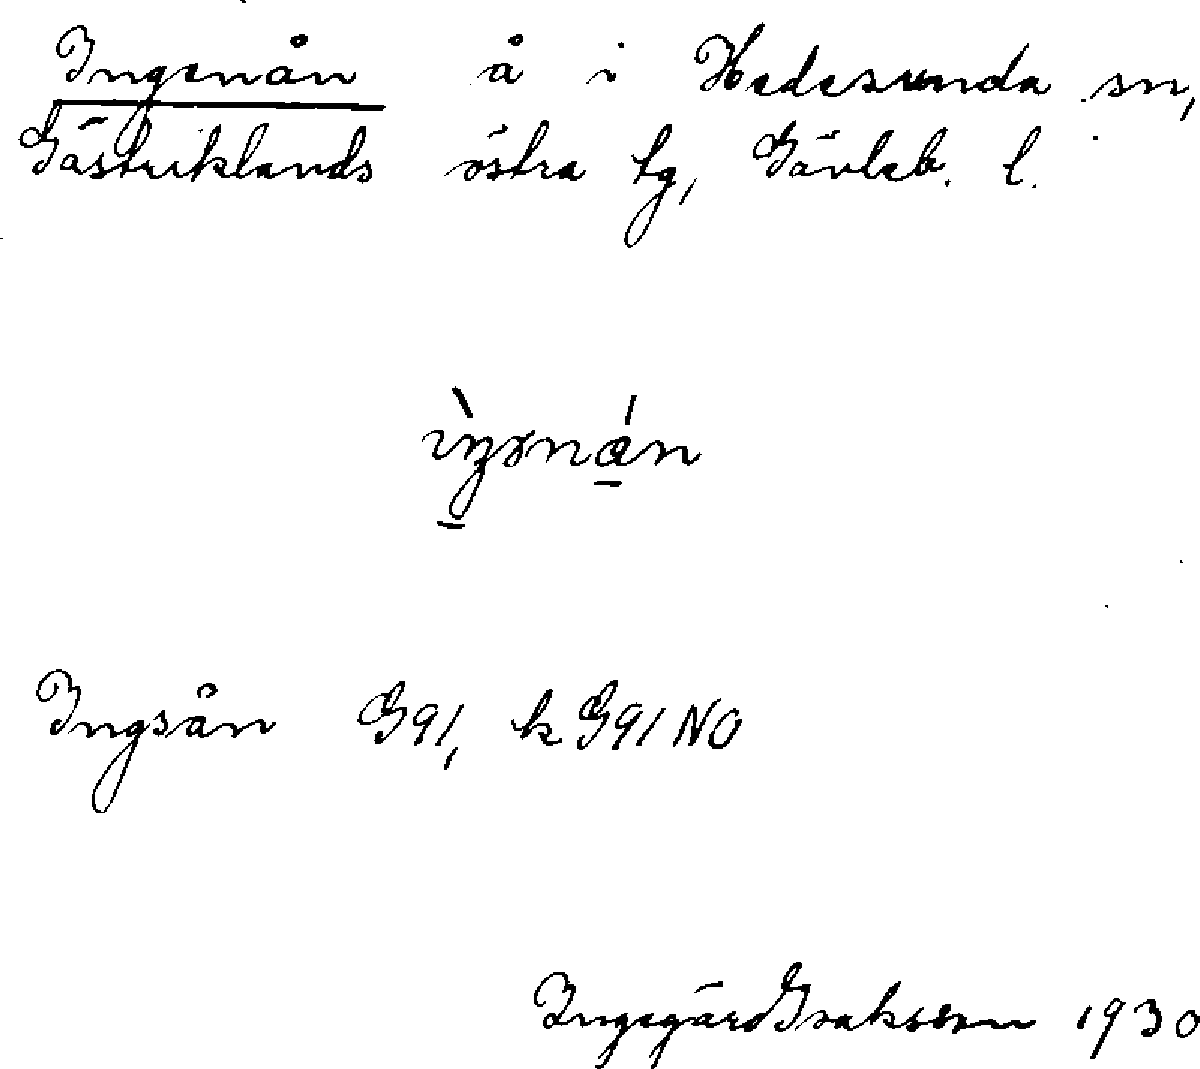 Ingenån å i Hedesunda sn,
Gästriklands östra tg, Gävleb. l.
Ingsån G91, k G91 NO
Ingegärd Isaksson 1930